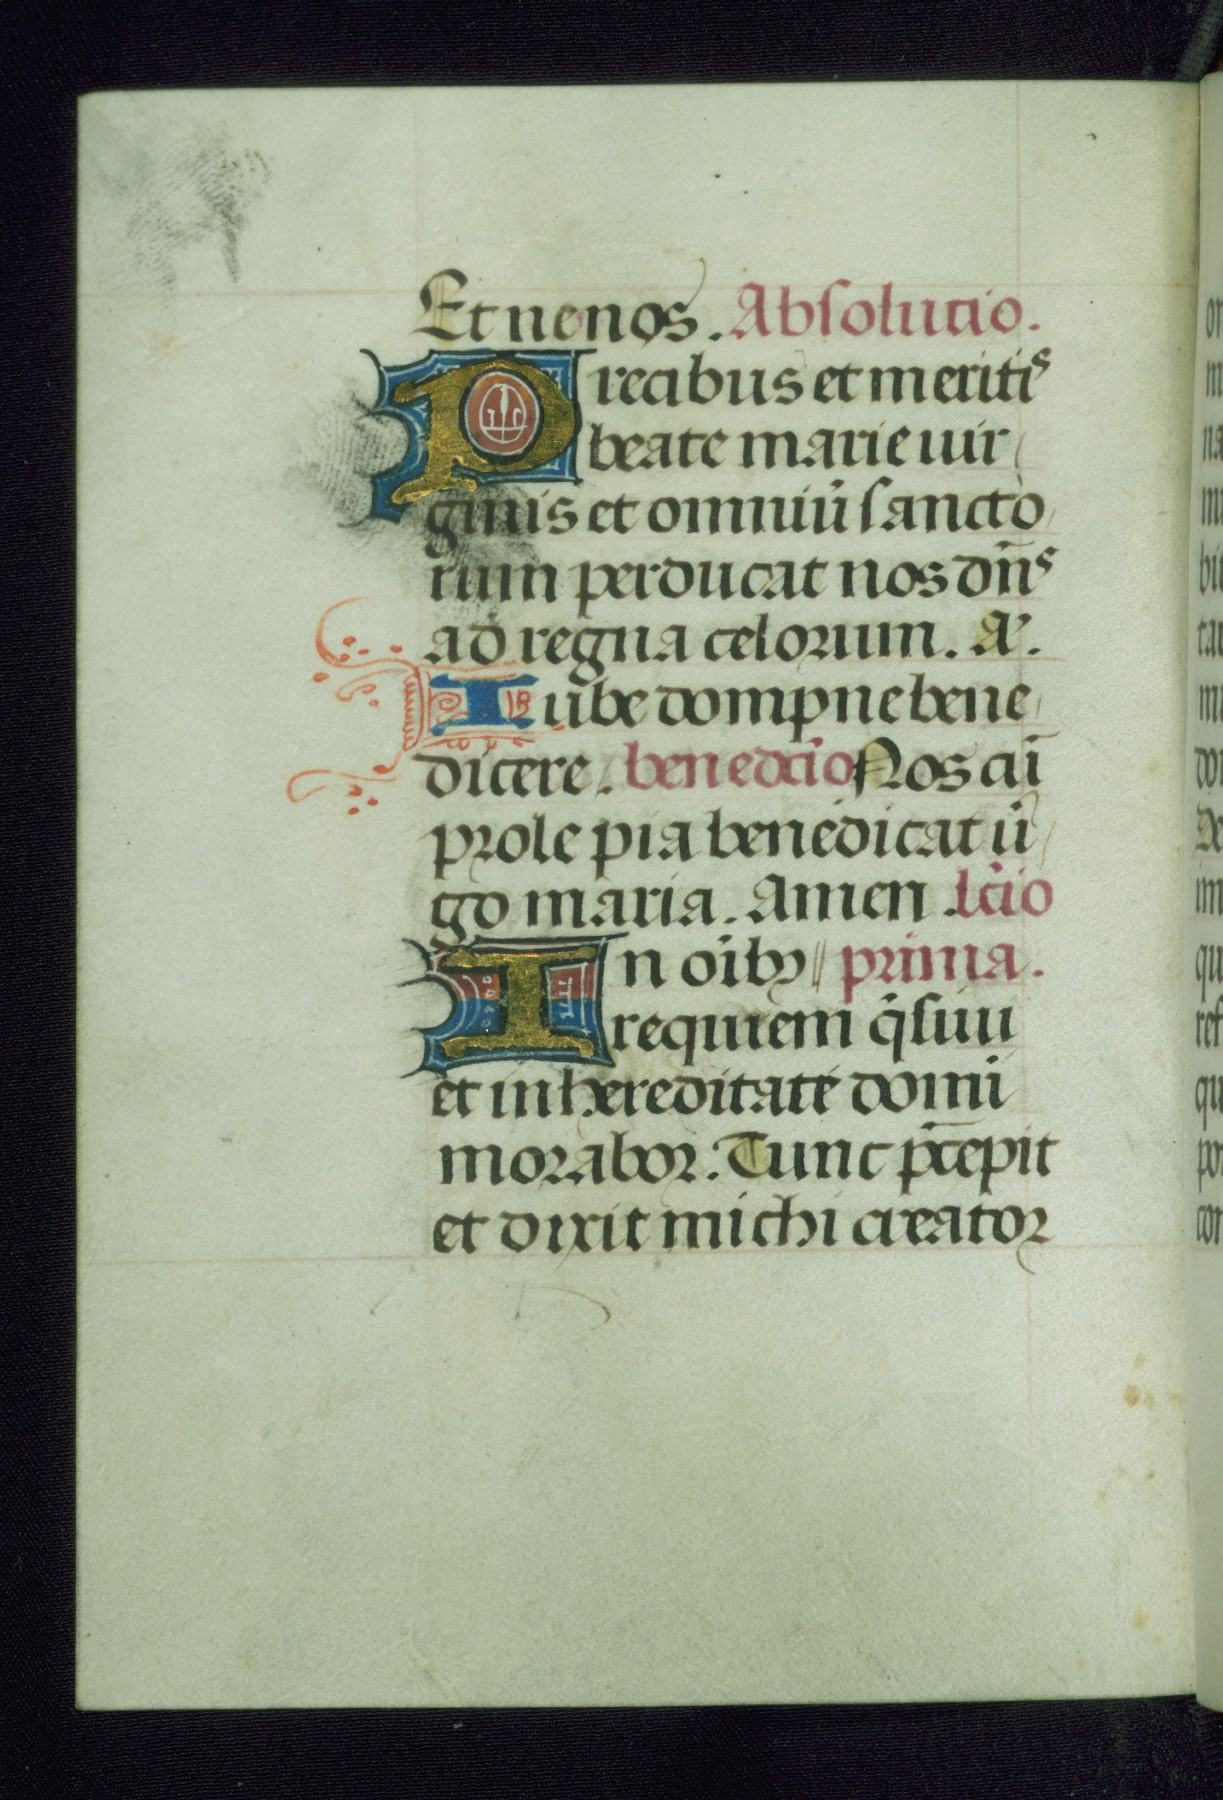 Et ne nos. Absolutio.
Precibus et meritis
beate marie uir
ginis et omniū sancto
rum perducat nos dn̄s
ad regna celorum. A.
Iube dompne bene
dicere. benedcīo Nos cū
prole pia benedicat ū
go maria. Amen. lcīo
In oībꝫ prima.
requiem q̄siui
et in hereditate domi
morabor: Tunc p̄cepit
et dixit michi creator